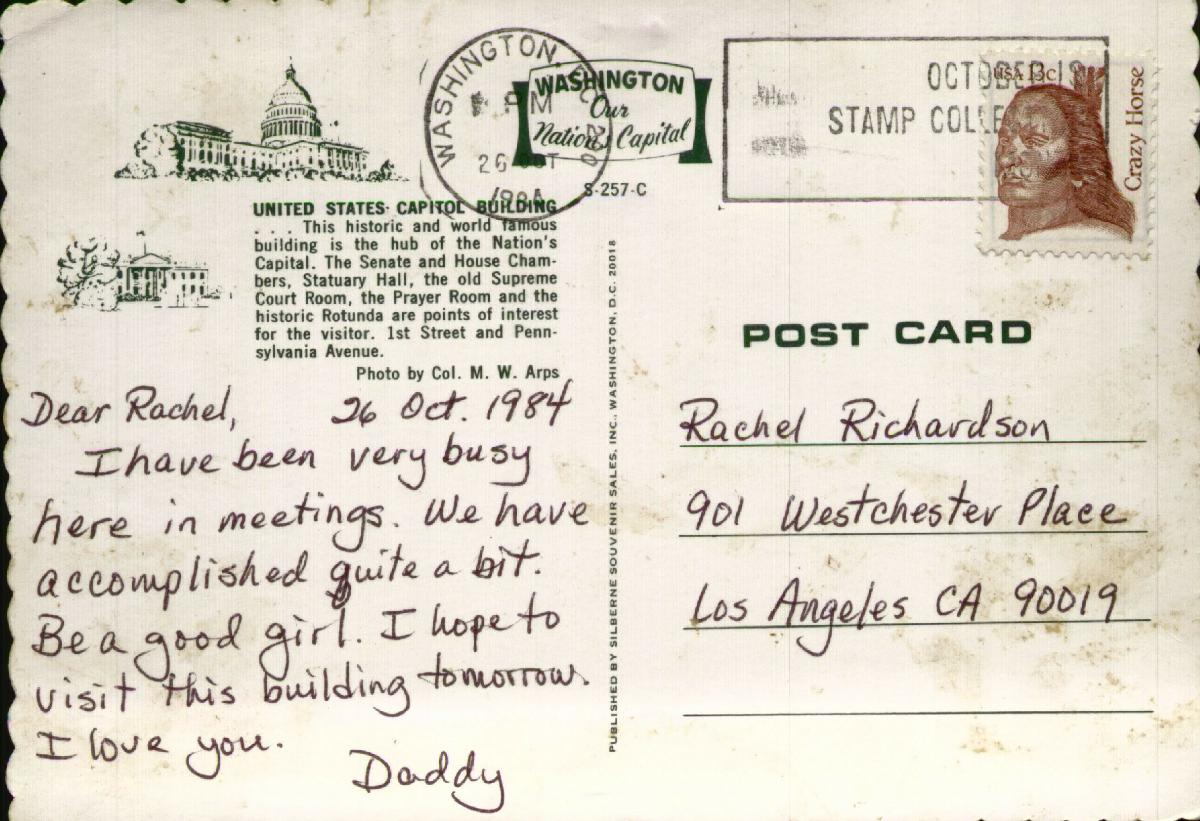 WASHINGTON, D.C. 200
PM
26 OCT
1984
WASHINGTON
Our
Nation's Capital
S-257-C
OCTOBER IS
STAMP COLLE
USA 13c
Crazy Horse
UNITED STATES CAPITOL BUILDING
. . . This historic and world famous
building is the hub of the Nation's
Capital. The Senate and House Cham-
bers, Statuary Hall, the old Supreme
Court Room, the Prayer Room and the
historic Rotunda are points of interest
for the visitor. 1st Street and Penn-
sylvania Avenue.
Photo by Col. M. W. Arps
Dear Rachel, 26 Oct. 1984
I have been very busy
here in meetings. We have
accomplished quite a bit.
Be a good girl. I hope to
visit this building tomorrow.
I love you.
Daddy
PUBLISHED BY SILBERNE SOUVENIR SALES, INC., WASHINGTON, D.C. 20018
POST CARD
Rachel Richardson
901 Westchester Place
Los Angeles CA 90019